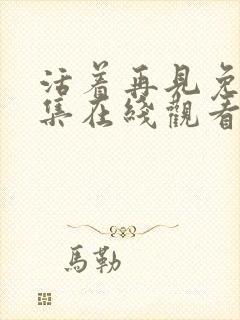 活着再見免
集在綫觀看
馬勒